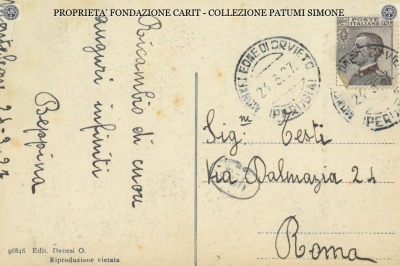 PROPRIETA' FONDAZIONE CARIT - COLLEZIONE PATUMI SIMONE
Ricambio di cuore
auguri infiniti
Beppina
POSTE ITALIANE
MONTELEONE DI ORVIETO
(PERUGIA)
Sig.ne Testi
Via Dalmazia 24
Roma
96846 Edit. Danesi O.
Riproduzione vietata